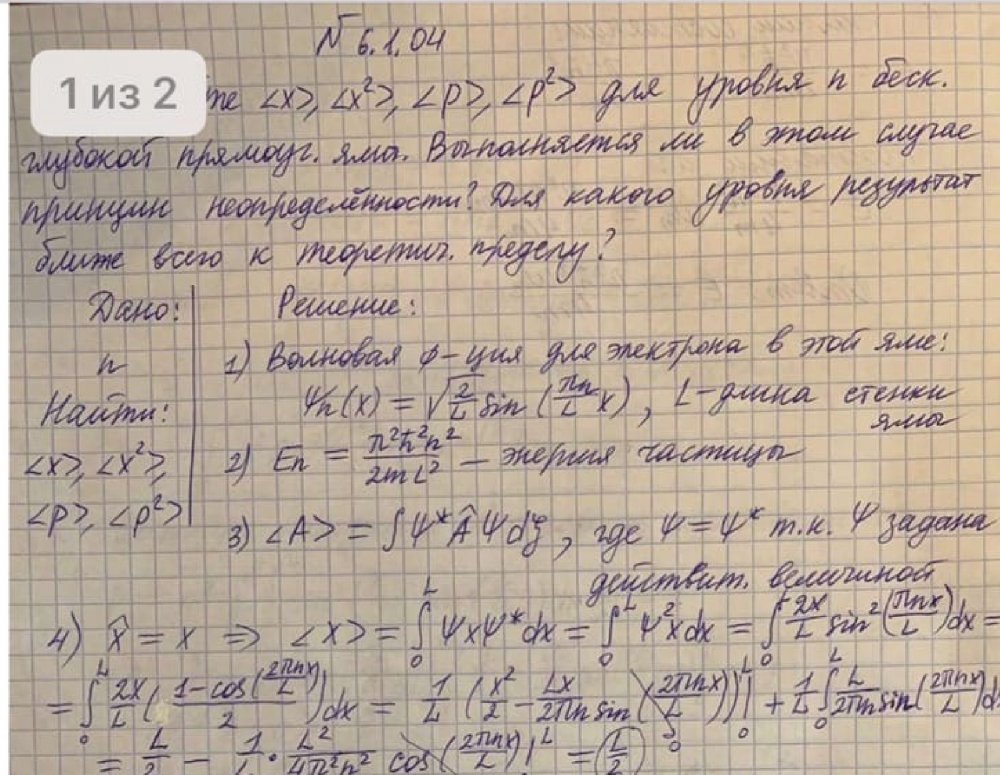 N 6.1.04
1 из 2
те <x>, <x²>, <p>, <p²> для уровня n беск.
глубокой прямоуг. ямы. Выполняется ли в этом случае
принцип неопределённости? Для какого уровня результат
ближе всего к теоретич. пределу?
Дано: Решение:
n 1) Волновая ф-ция для электрона в этой яме:
Найти: Ψn(x) = √(2/L) sin (πn/L x), L-длина стенки
ямы
<x>, <x²>, 2) En = π²ħ²n²/2mL² – энергия частицы
<p>, <p²>
3) <A> = ∫Ψ* Â Ψ dξ, где Ψ = Ψ* т.к. Ψ задана
действит. величиной
4) x̂ = x ⇒ <x> = ∫₀ᴸ ΨxΨ* dx = ∫₀ᴸ Ψ²x dx = ∫₀ᴸ 2x/L sin² (πnx/L) dx =
= ∫₀ᴸ 2x/L ((1-cos(2πnx/L))/2) dx = 1/L (x²/2 - Lx/2πn sin(2πnx/L))|₀ᴸ + 1/L ∫₀ᴸ L/2πn sin(2πnx/L) d
= L/2 - 1/L · L²/4π²n² cos(2πnx/L)|ᴸ = L/2